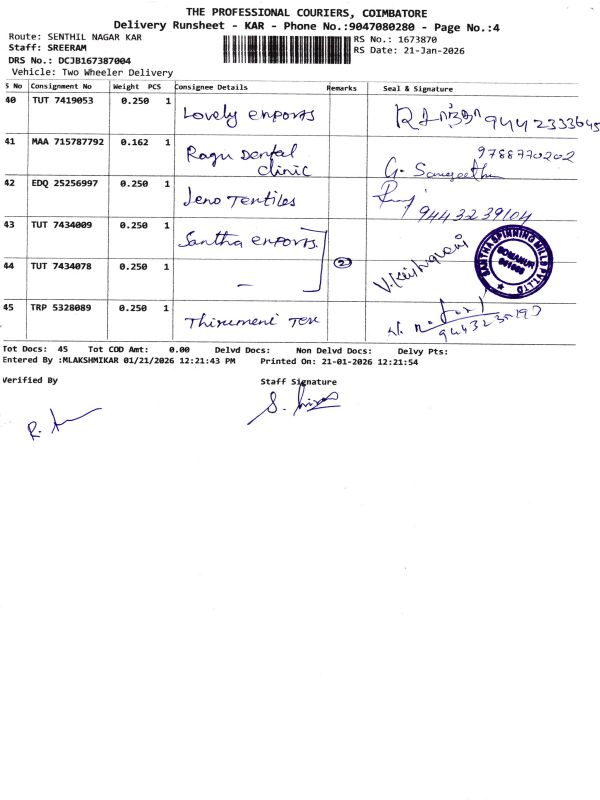 THE PROFESSIONAL COURIERS, COIMBATORE
Delivery Runsheet - KAR - Phone No.:9047080280 - Page No.:4
Route: SENTHIL NAGAR KAR
RS No.: 1673870
Staff: SREERAM
RS Date: 21-Jan-2026
DRS No.: DCJB167387004
Vehicle: Two Wheeler Delivery
S No Consignment No Weight PCS Consignee Details Remarks Seal & Signature
40 TUT 7419053 0.250 1 Lovely exports 9442333645
41 MAA 715787792 0.162 1 Ragu Dental clinic 9788770202 G. Sangeetha
42 EDQ 25256997 0.250 1 Jeno Textiles 9443239104
43 TUT 7434009 0.250 1 Santha exports
2 V. Krishnaveni
SANTHA SPINNING MILLS PVT LTD
SOMANUR
44 TUT 7434078 0.250 1 -
45 TRP 5328089 0.250 1 Thirumeni Tex
Tot Docs: 45 Tot COD Amt: 0.00 Delvd Docs: Non Delvd Docs: Delvy Pts:
Entered By :MLAKSHMIKAR 01/21/2026 12:21:43 PM Printed On: 21-01-2026 12:21:54
Verified By Staff Signature